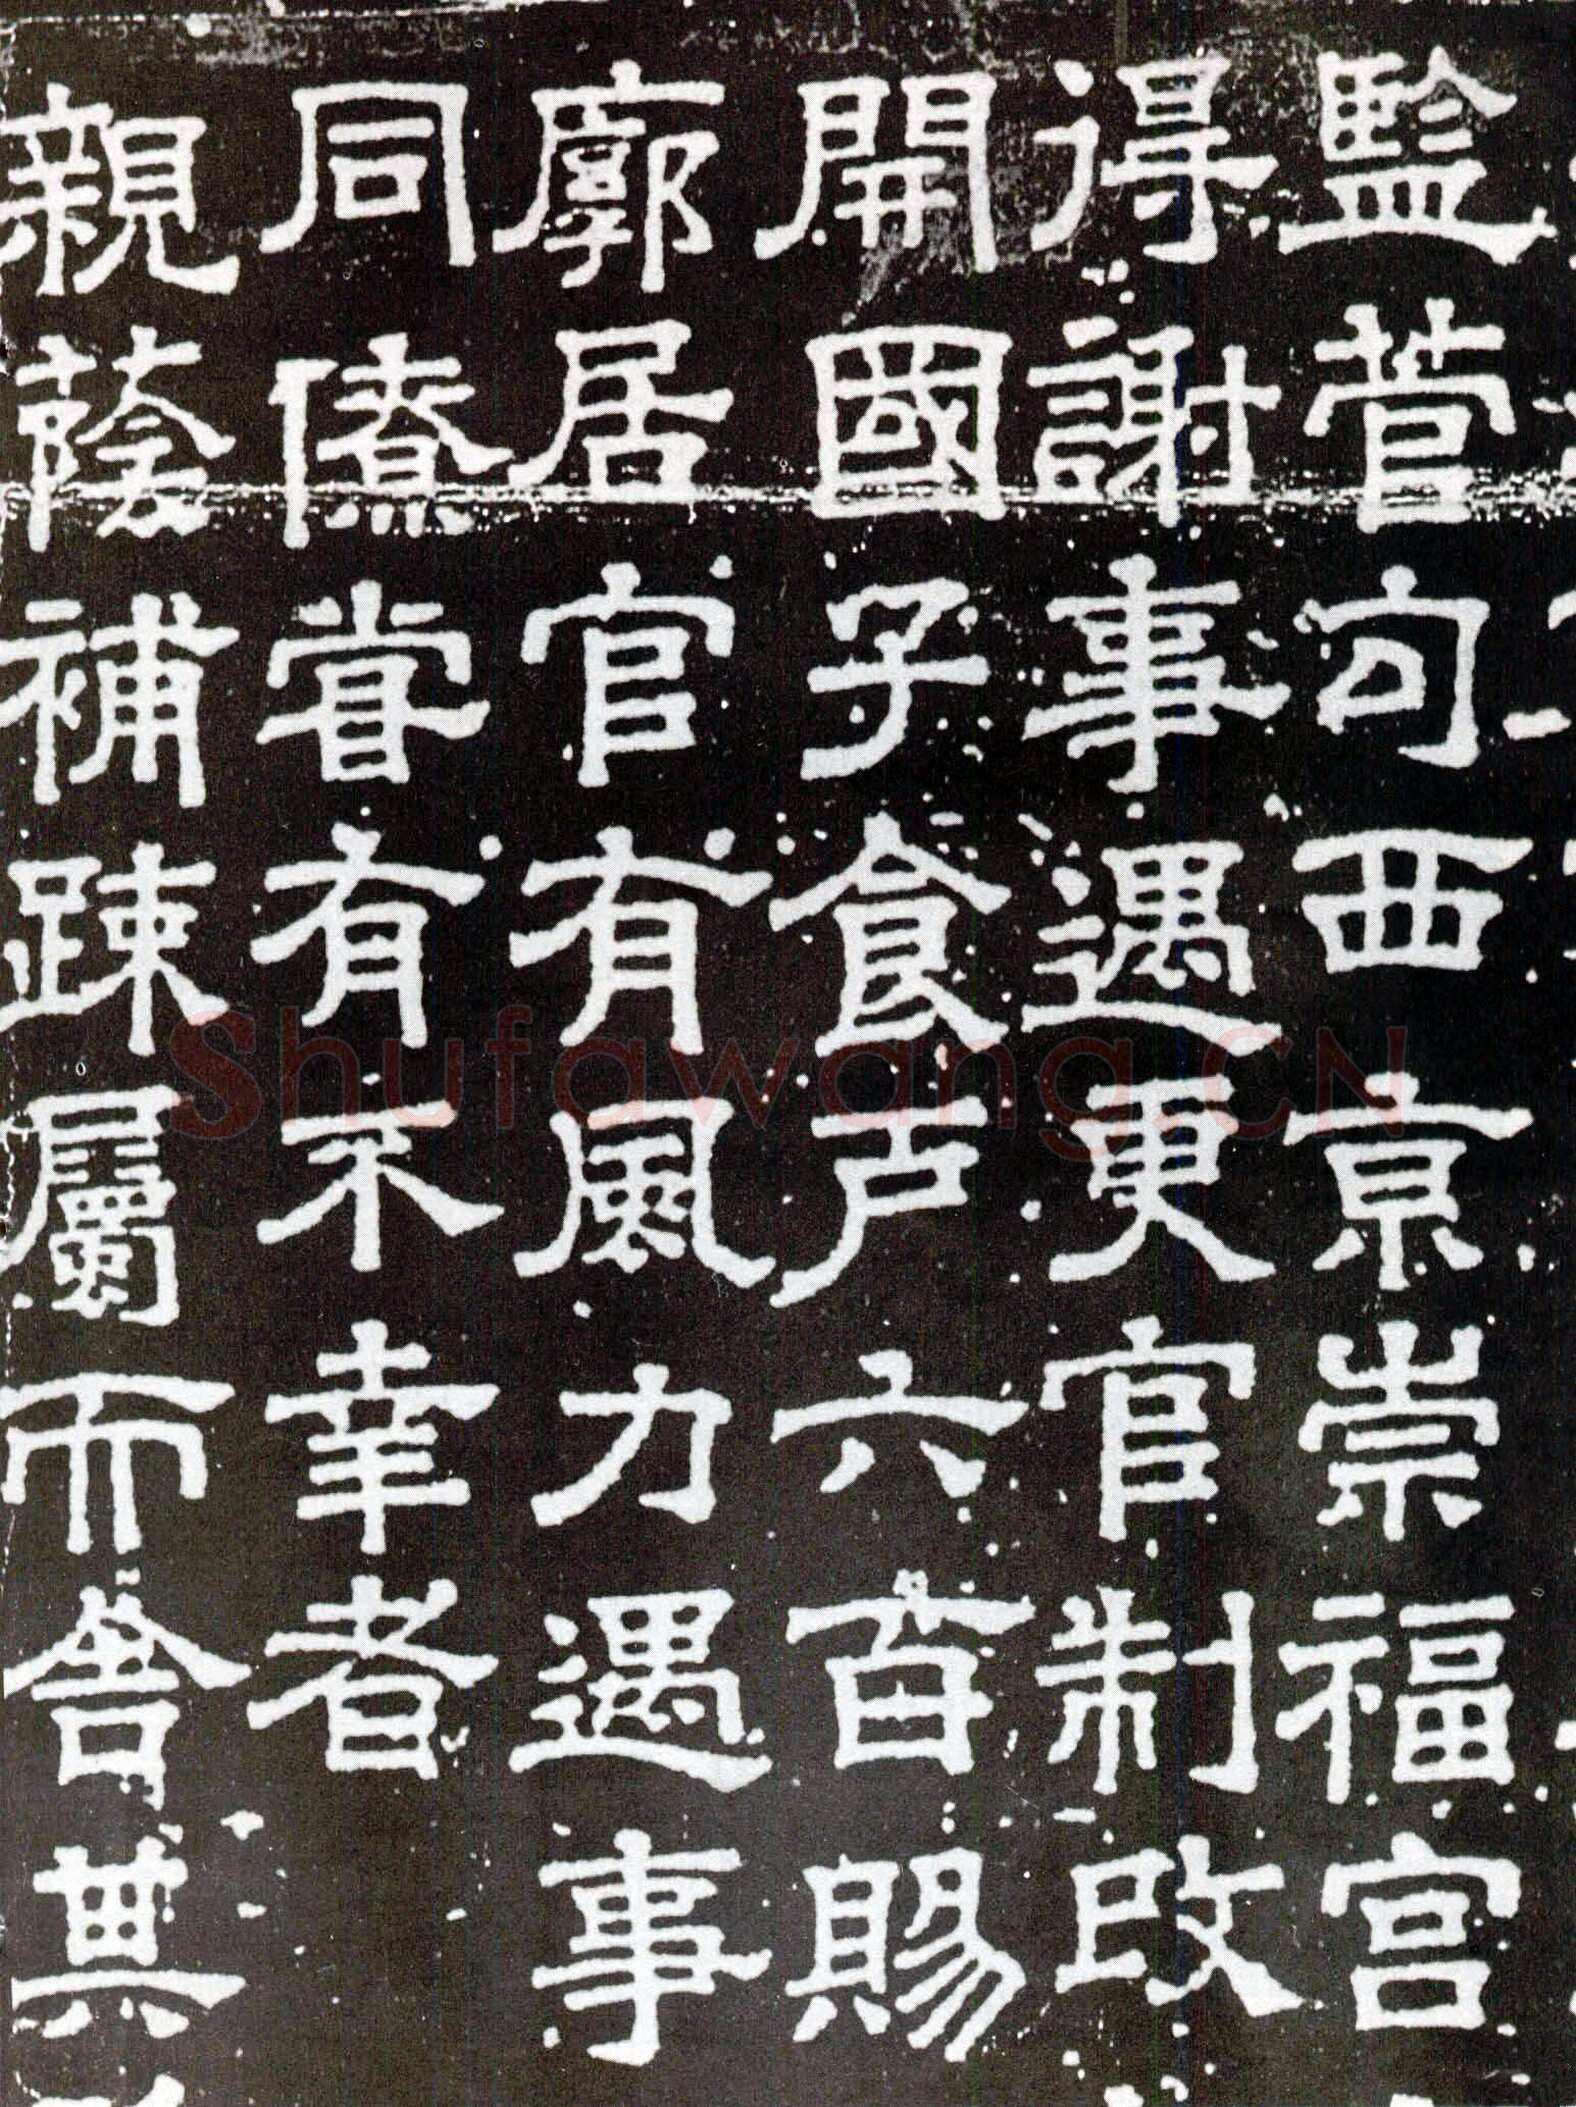 監管句西京崇福宮
得謝事遇更官制改
開國子食户六百賜
廓居官有風力遇事
同僚嘗有不幸者
親蔭補踈屬而舍其
Shufawang.CN